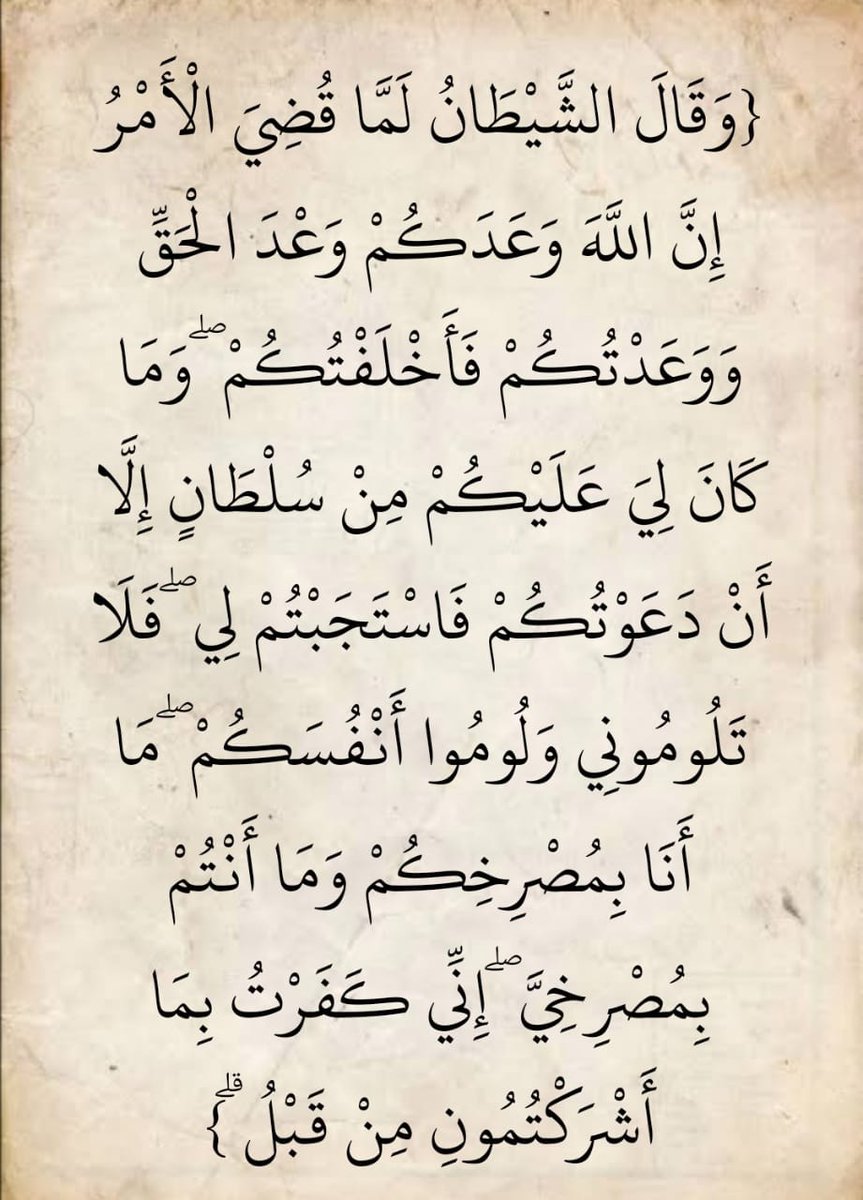 {وَقَالَ الشَّيْطَانُ لَمَّا قُضِيَ الْأَمْرُ
إِنَّ اللَّهَ وَعَدَكُمْ وَعْدَ الْحَقِّ
وَوَعَدْتُكُمْ فَأَخْلَفْتُكُمْ ۖ وَمَا
كَانَ لِيَ عَلَيْكُمْ مِنْ سُلْطَانٍ إِلَّا
أَنْ دَعَوْتُكُمْ فَاسْتَجَبْتُمْ لِي ۖ فَلَا
تَلُومُونِي وَلُومُوا أَنْفُسَكُمْ ۖ مَا
أَنَا بِمُصْرِخِكُمْ وَمَا أَنْتُمْ
بِمُصْرِخِيَّ ۖ إِنِّي كَفَرْتُ بِمَا
أَشْرَكْتُمُونِ مِنْ قَبْلُ ۗ}